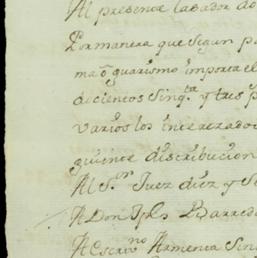 Al presente labador do
Por manera que segun p
ma õ guarismo importa el
decientos Sinq.ta y tres p
varios los interezados
guiente distribucion
Al S.or Juez diez y S
A Don Jph Pizarred
A Escriv.no Armenta Sinq